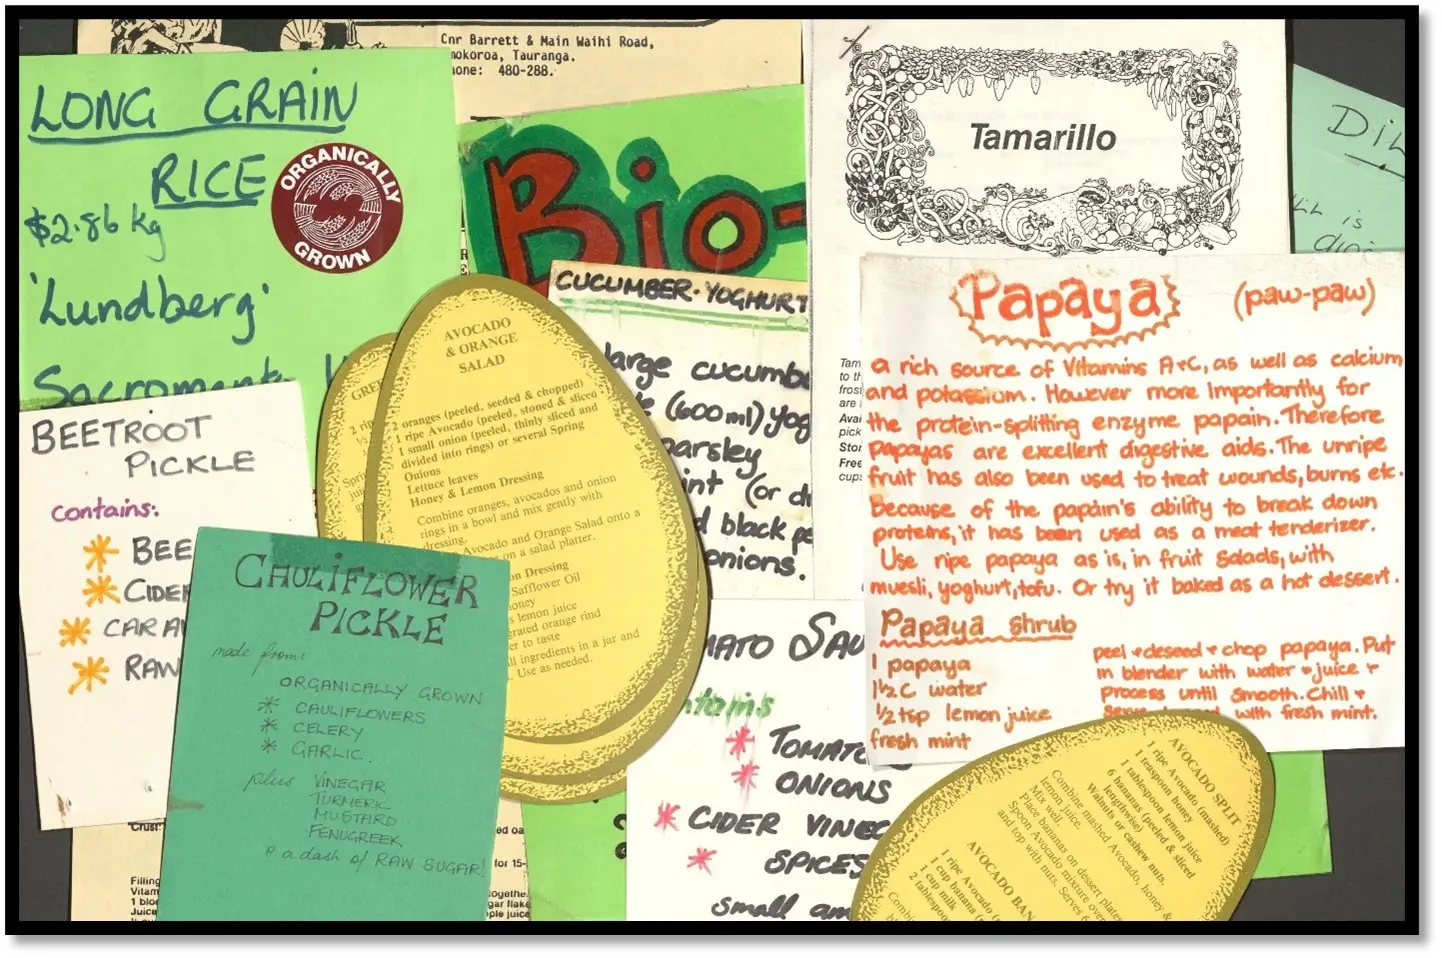 Cnr Barrett & Main Waihi Road,
mokoroa, Tauranga.
hone: 480-288.
LONG GRAIN
RICE
$2.86 kg
'Lundberg'
Sacrament
ORGANICALLY
GROWN
Bio-
Tamarillo
DIL
is
CUCUMBER-YOGHURT
large cucumb
(600ml) yog
parsley
int (or d
d black pe
onions.
Tam
to th
fros
are
Avai
pick
Stor
Free
cups
Papaya (paw-paw)
a rich source of Vitamins A+C, as well as calcium
and potassium. However more importantly for
the protein-splitting enzyme papain. Therefore
papayas are excellent digestive aids. The unripe
fruit has also been used to treat wounds, burns etc.
Because of the papain's ability to break down
proteins, it has been used as a meat tenderizer.
Use ripe papaya as is, in fruit salads, with
muesli, yoghurt, tofu. Or try it baked as a hot dessert.
Papaya shrub
1 papaya
1½ C water
½ tsp lemon juice
fresh mint
peel + deseed + chop papaya. Put
in blender with water + juice +
process until smooth. Chill +
with fresh mint.
GRE
2 rip
Spri
AVOCADO
& ORANGE
SALAD
2 oranges (peeled, seeded & chopped)
1 ripe Avocado (peeled, stoned & sliced
1 small onion (peeled, thinly sliced and
divided into rings) or several Spring
Onions
Lettuce leaves
Honey & Lemon Dressing
Combine oranges, avocados and onion
rings in a bowl and mix gently with
dressing.
Avocado and Orange Salad onto a
on a salad platter.
on Dressing
Safflower Oil
honey
s lemon juice
grated orange rind
er to taste
ll ingredients in a jar and
. Use as needed.
BEETROOT
PICKLE
contains:
* BEE
* CIDER
* CARA
* RAW
CHAULIFLOWER
PICKLE
made from:
ORGANICALLY GROWN
* CAULIFLOWERS
* CELERY
* GARLIC.
plus VINEGAR
TURMERIC
MUSTARD
FENUGREEK
& a dash of RAW SUGAR!
MATO SAU
ntains
* TOMATO
* ONIONS
* CIDER VINEG
* SPICES
small am
AVOCADO SPLIT
1 ripe Avocado (mashed)
1 teaspoon honey
1 tablespoon lemon juice
6 bananas (peeled & sliced
lengthwise)
Walnuts or cashew nuts.
Combine mashed Avocado, honey &
lemon juice.
Mix well.
Place bananas on dessert plates
Spoon Avocado mixture over
and top with nuts. Serves 6
AVOCADO BAN
1 ripe Avocado (
1 cup banana (
1 cup milk
2 tablespoo
Combi
"Crust
Filling
Vitam
1 bloc
Juice
ed oa
for 15-
ogethe
gar flake
ple juice